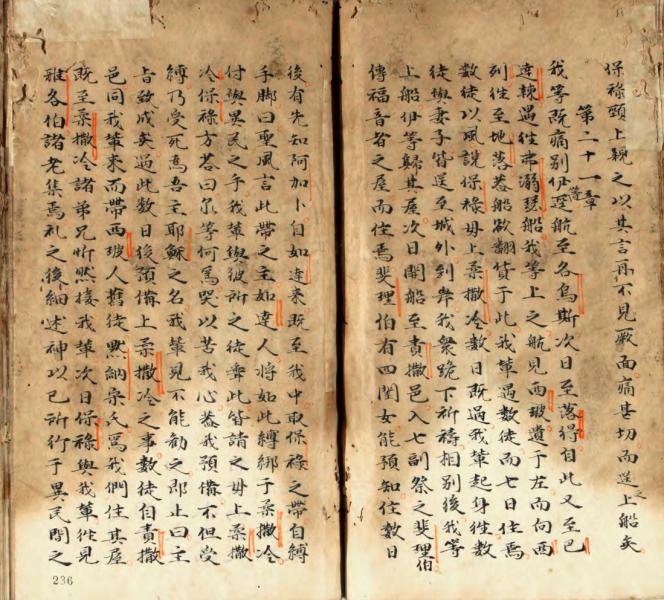 保祿頸上親之以其言再不見厥面痛甚切而送之上船矣
第二十一章
我等既痛別伊等遂航至各烏斯次日至落得自此又至巴
達辣遇往弗溺瑟船我等上之航見西玻遺于左而向西
列往至地落蓋船欲翻貨于此我輩遇數徒而七日住焉
數徒以風說保祿毋上柔撒冷數日既過我輩起身往數
徒與妻子皆送至城外到岸我衆跪下祈禱相別後我等
上船伊等歸其屋次日開船至責撒邑入七副祭之斐理伯
傳福音者之屋而住焉斐理伯有四閨女能預知住數日
後有先知阿加卜自如達来既至我中取保祿之帶自縛
手脚曰聖風言此帶之主如達人將如此縛綁于柔撒冷
付與異民之手我輩與彼所之徒齊此皆請之毋上柔撒
冷保祿方荅曰尒等何爲哭以苦我心蓋我預備不但受
縛乃受死爲吾主耶穌之名我輩見不能勸之即止曰主
旨致成矣過此數日後預備上柔撒冷之事數徒自責撒
邑同我輩来而帶西玻人舊徒默納宗氏爲我們住其屋
既至柔撒冷諸弟兄忻然接我輩次日保祿與我輩往見
雅各伯諸老集焉礼之後細述神以己所行于異民間之
236